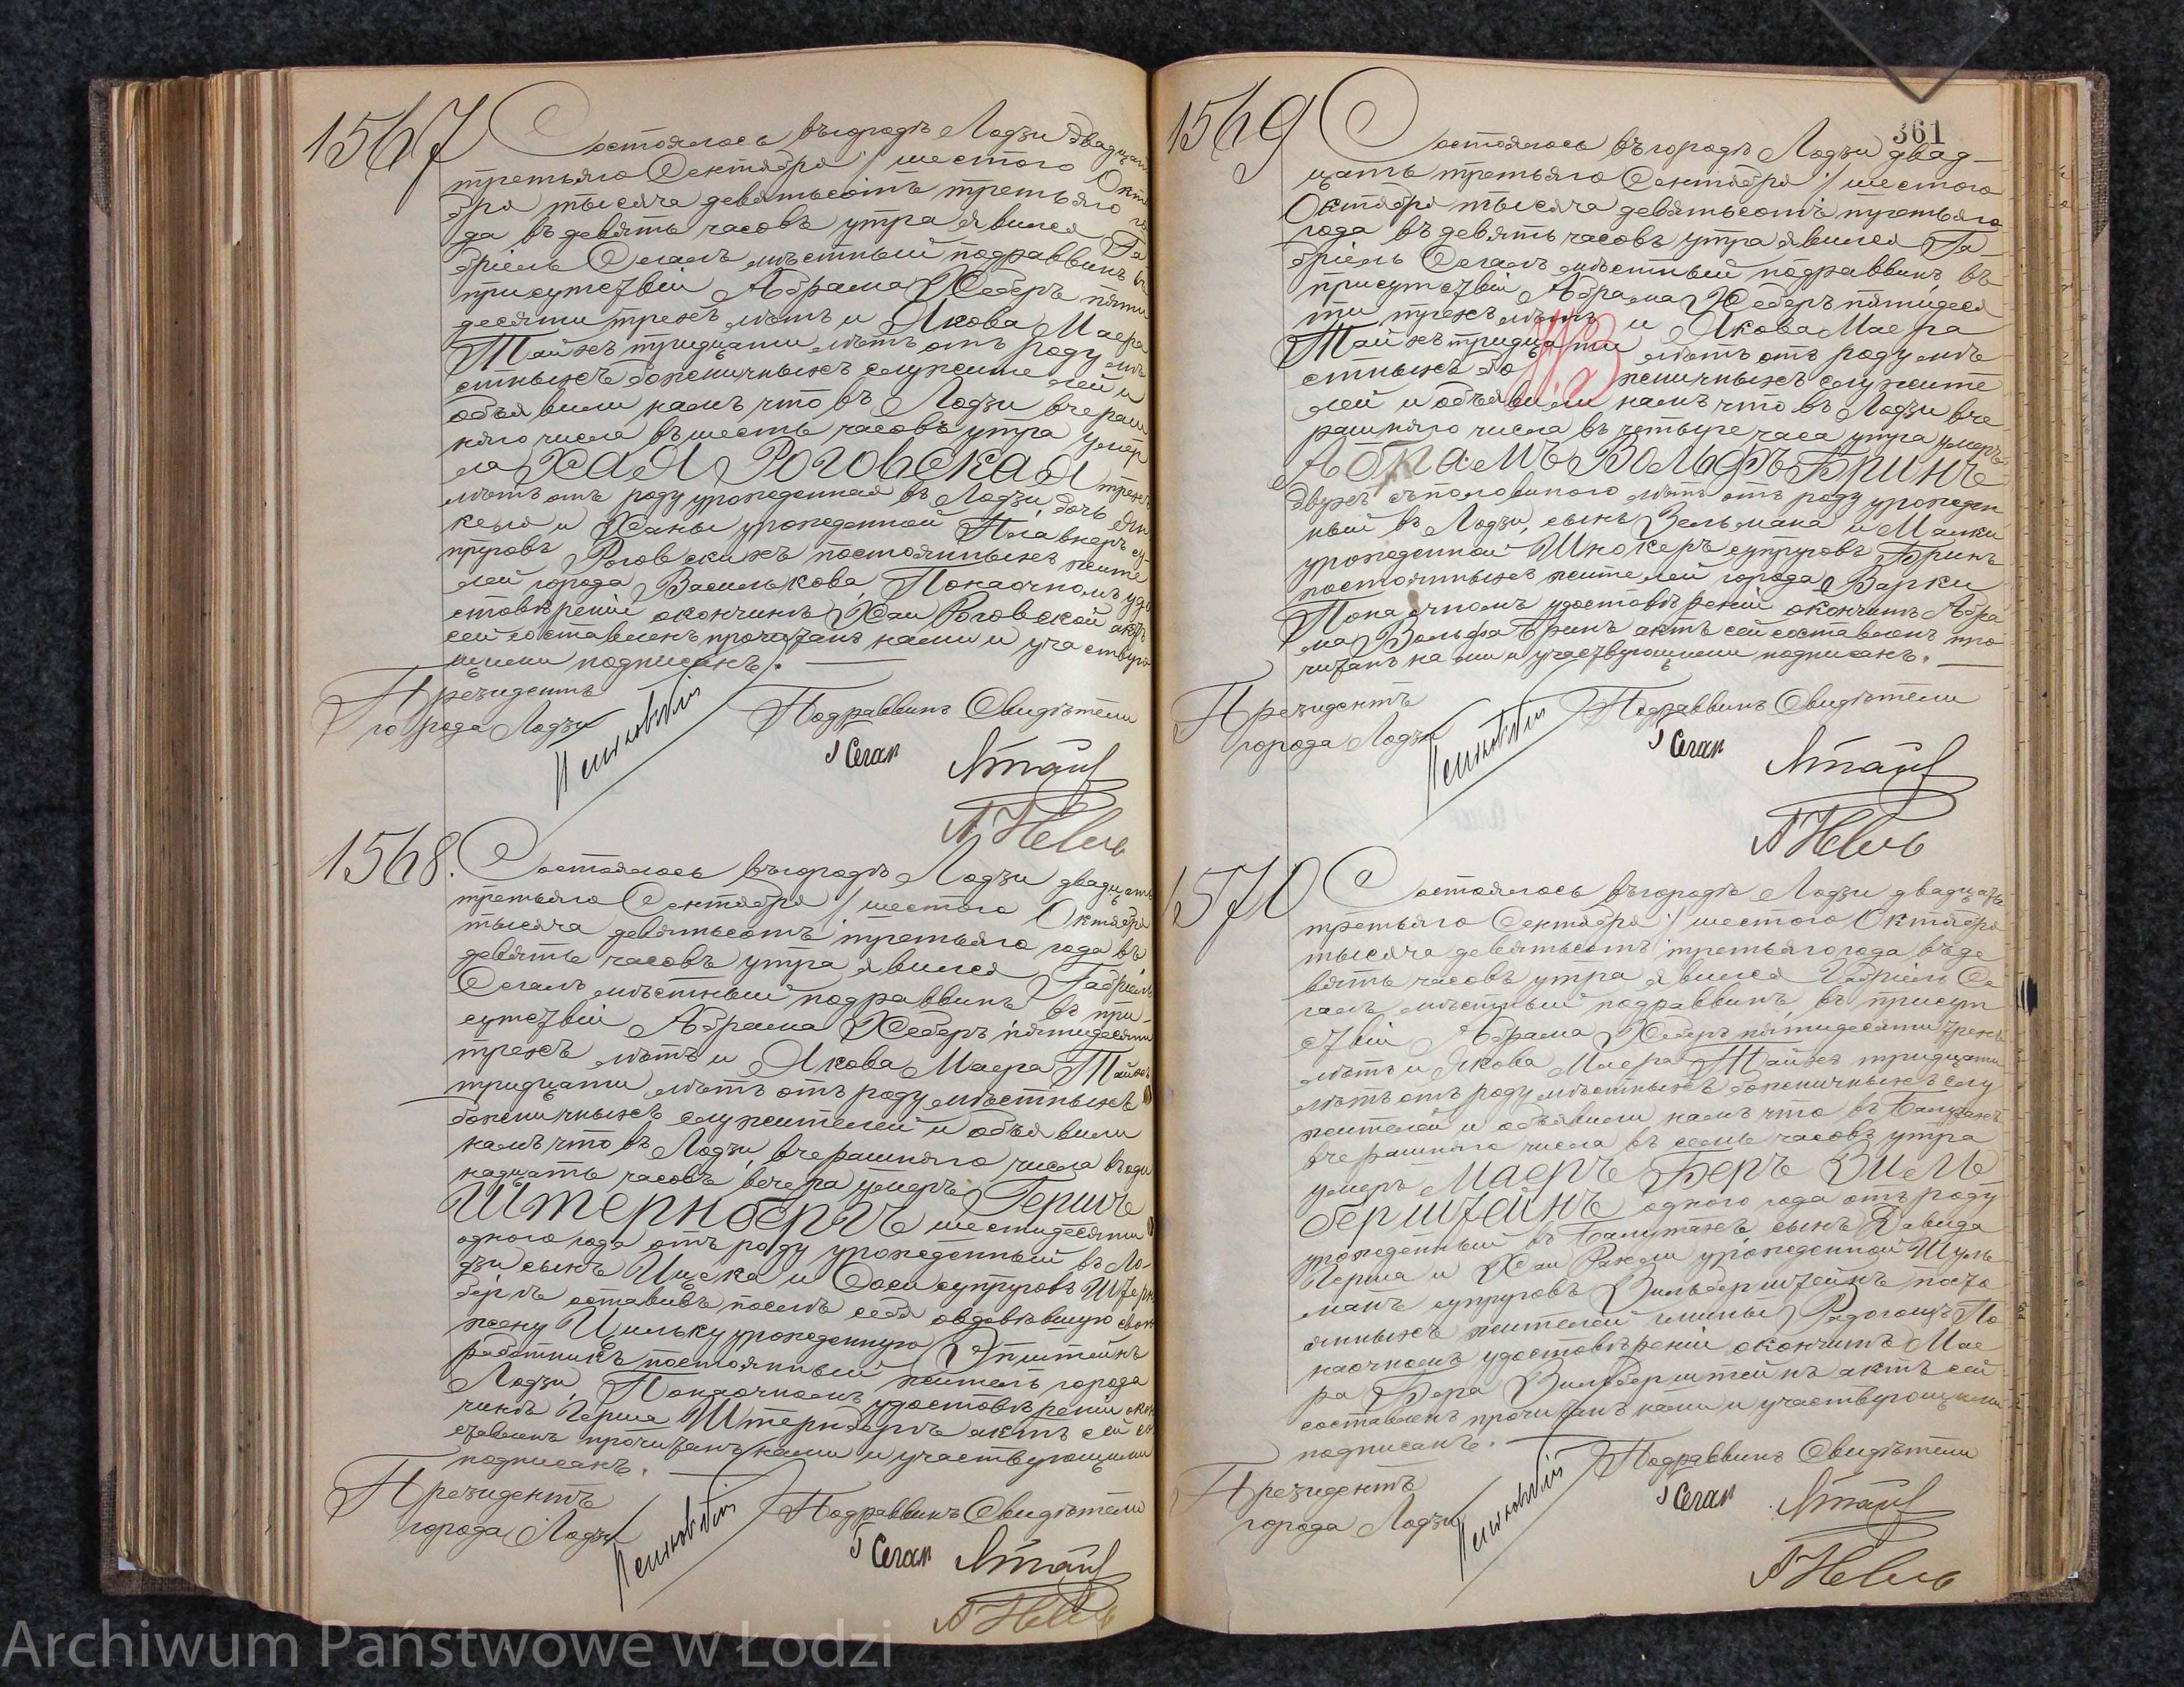 1567
Состоялось въ городѣ Лодзи двадцать
третьяго Сентября / шестого Октя
бря тысяча девятьсотъ третьяго го
да въ девять часовъ утра явился Га
бріель Сегалъ мѣстный подраввинъ въ
присутствіи Абрама Хеберъ пяти
десяти трехъ лѣтъ и Якова Маера
Тайхъ тридцати лѣтъ отъ роду мѣ
стныхъ божничныхъ служителей и
объявили намъ что въ Лодзи вчераш
няго числа въ шесть часовъ утра умер
ла Хая Роговская трехъ
лѣтъ отъ роду урожденная въ Лодзи, дочь
и Ханы урожденной су
пруговъ Роговскихъ постоянныхъ жите
лей города Василькова, По наочномъ удо
стовѣреніи окончинѣ Хаи Роговской актъ
сей составленъ прочитанъ нами и участвую
щими подписанъ. —
Президентъ
города Лодзи Подраввинъ Свидѣтели
Г Сегал
1568.
Состоялось въ городѣ Лодзи двадцать
третьяго Сентября / шестого Октября
тысяча девятьсотъ третьяго года въ
девять часовъ утра явился Габріель
Сегалъ мѣстный подраввинъ въ при-
сутствіи Абрама Хеберъ пятидесяти
трехъ лѣтъ и Якова Маера Тайхъ
тридцати лѣтъ отъ роду мѣстныхъ
божничныхъ служителей и объявили
намъ что въ Лодзи, вчерашняго числа въ оди
надцать часовъ вечера умеръ Гершъ
Штернбергъ шестидесяти
одного года отъ роду урожденный въ Ло-
дзи сынъ Ицека и супруговъ Штерн
бергъ оставивъ послѣ себя овдовѣвшую свою
жену Цильку урожденную Эпштейнъ
работникъ постоянный житель города
Лодзи, По наочномъ удостовѣреніи окон
чинѣ Герша Штернбергъ актъ сей со
ставленъ прочитанъ нами и участвующими
подписанъ. —
Президентъ
города Лодзи Подраввинъ Свидѣтели
Г Сегал
361
1569
Состоялось въ городѣ Лодзи двад-
цать третьяго Сентября / шестого
Октября тысяча девятьсотъ третьяго
года въ девять часовъ утра явился Га-
бріель Сегалъ мѣстный подраввинъ, въ
присутствіи Абрама Хеберъ пятидеся
ти трехъ лѣтъ и Якова Маера
Тайхъ тридцати лѣтъ отъ роду мѣ
стныхъ божничныхъ служите
лей и объявили намъ что въ Лодзи вче
рашняго числа въ четыре часа утра умеръ
Абрамъ Вольфъ Бринъ
двухъ съ половиною лѣтъ отъ роду урожден
ный въ Лодзи, сынъ Зельмана и Малки
урожденной супруговъ Бринъ
постоянныхъ жителей города Варки
По наочномъ удостовѣреніи окончинѣ Абра
ма Вольфа Бринъ актъ сей составленъ про
читанъ нами и участвующими подписанъ. —
Президентъ
города Лодзи Подраввинъ Свидѣтели
Г Сегал
1570
Состоялось въ городѣ Лодзи двадцать
третьяго Сентября / шестого Октября
тысяча девятьсотъ третьяго года въ де
вять часовъ утра явился Габріель Се
галъ мѣстный подраввинъ, въ присут
ствіи Абрама Хеберъ пятидесяти трехъ
лѣтъ и Якова Маера Тайхъ тридцати
лѣтъ отъ роду мѣстныхъ божничныхъ слу
жителей и объявили намъ что въ Балутахъ
вчерашняго числа въ семь часовъ утра
умеръ Маеръ Беръ Зиль
берштейнъ одного года отъ роду
урожденный въ Балутахъ, сынъ Давида
Герша и Хаи Рахели урожденной Шуль
манъ супруговъ Зильберштейнъ посто
янныхъ жителей гмины Радогощъ По
наочномъ удостовѣреніи окончинѣ Мае
ра Бера Зильберштейнъ актъ сей
составленъ прочитанъ нами и участвующими
подписанъ. —
Президентъ
города Лодзи Подраввинъ Свидѣтели
Г Сегал
Archiwum Państwowe w Łodzi